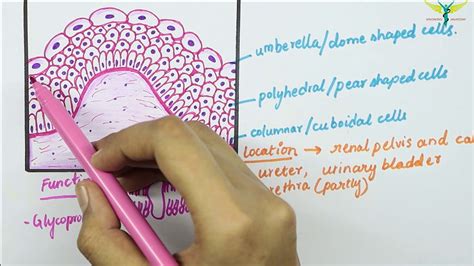 umbrella/dome shaped cells.
polyhedral/pear shaped cells
columnar/cuboidal cells
Location → renal pelvis and ca
ureter, urinary bladder
urethra (partly)
Functi
- Glycopro